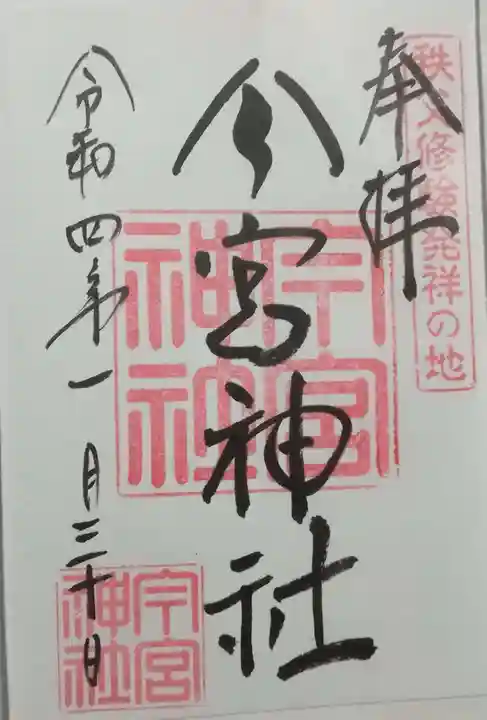 奉拝
秩父修験発祥の地
今宮神社
今宮神社
令和四年一月三十日
今宮神社